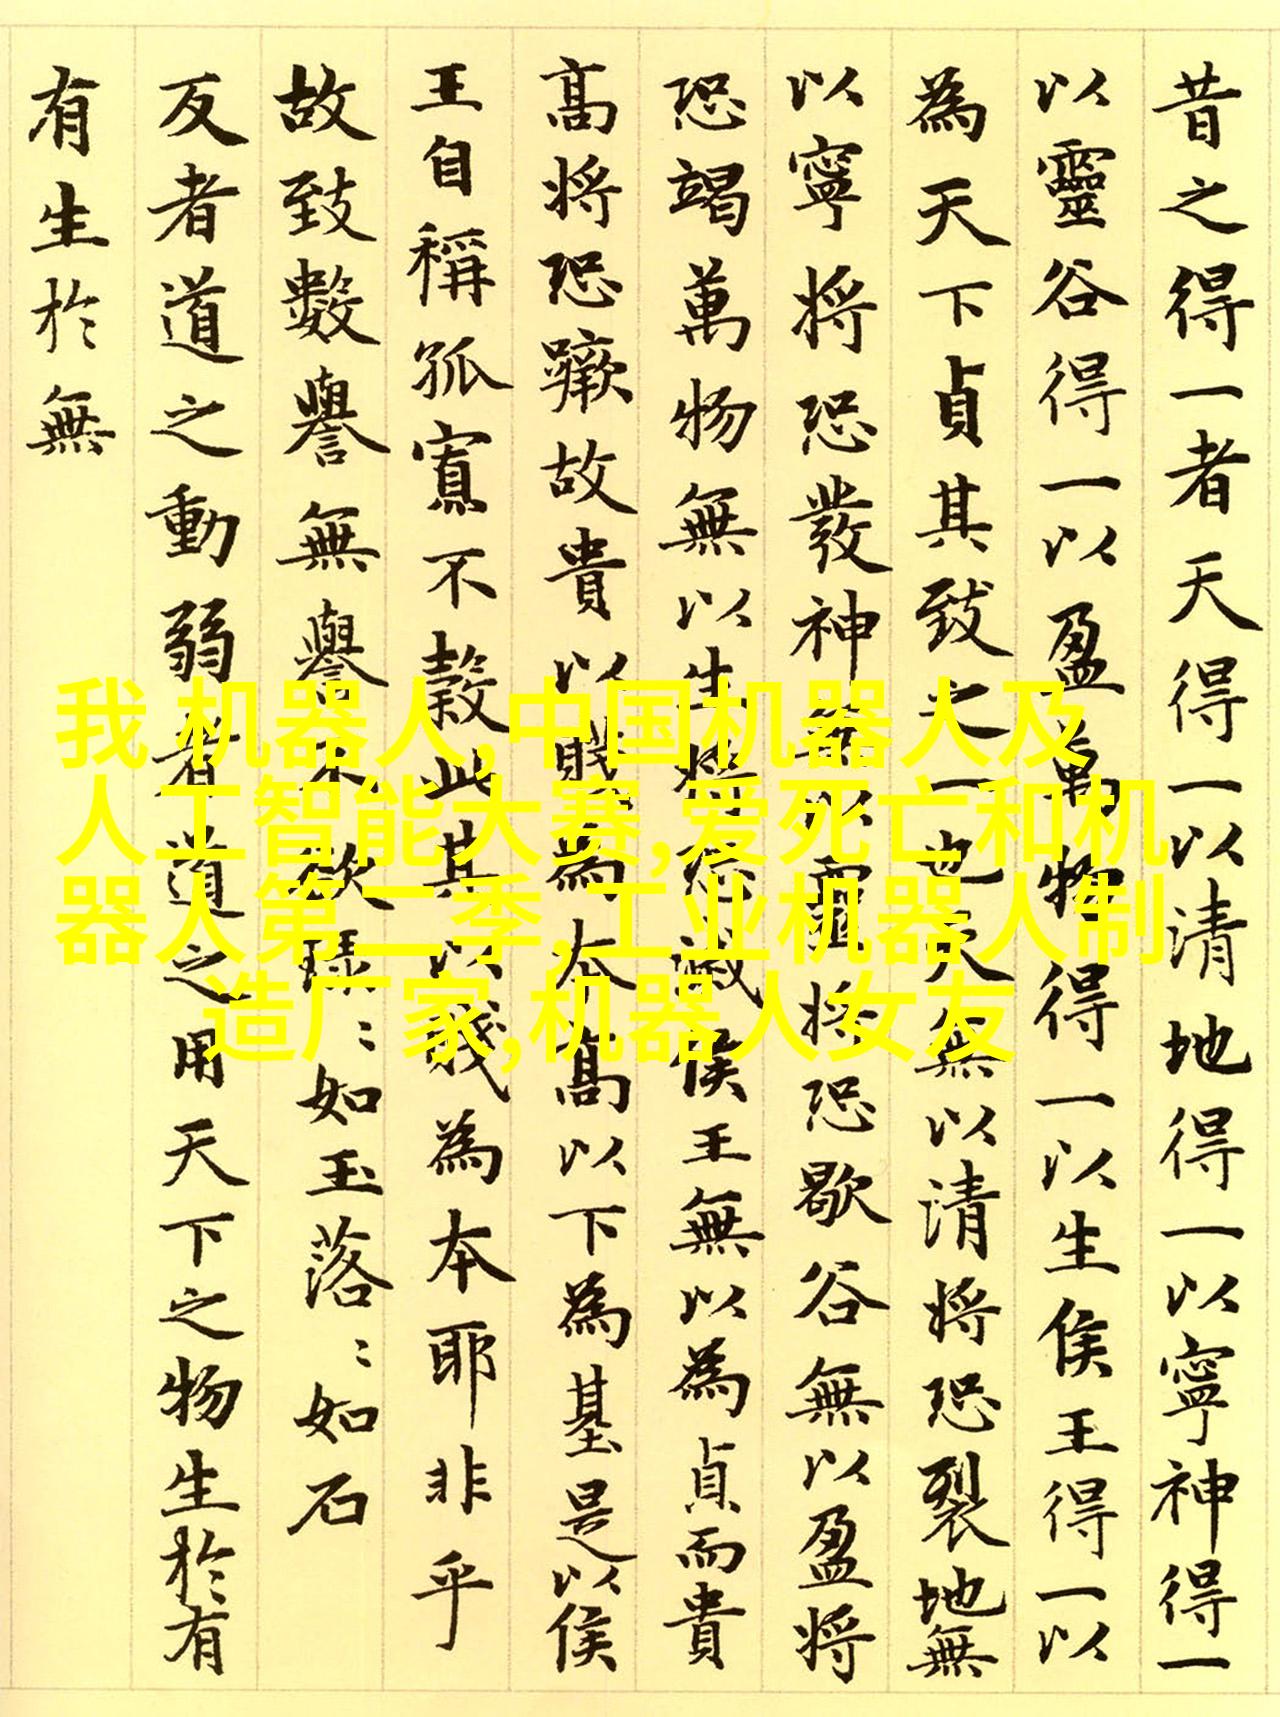 昔之得一者天得一以清地得一以寧神得一
以靈谷得一以盈萬物得一以生侯王得一以
為天下貞其致之一也天無以清將恐裂地無
以寧將恐發神無以靈將恐歇谷無以盈將
恐竭萬物無以生將恐滅侯王無以為貞而貴
高將恐蹶故貴以賤為本高以下為基是以侯
王自稱孤寡不穀此其以賤為本耶非乎
故致數譽無譽不欲琭〻如玉落〻如石
反者道之動弱者道之用天下之物生於有
有生於無
我,机器人,中国机器人及
人工智能大赛,爱死亡和机
器人第二季,工业机器人制
造厂家,机器人女友